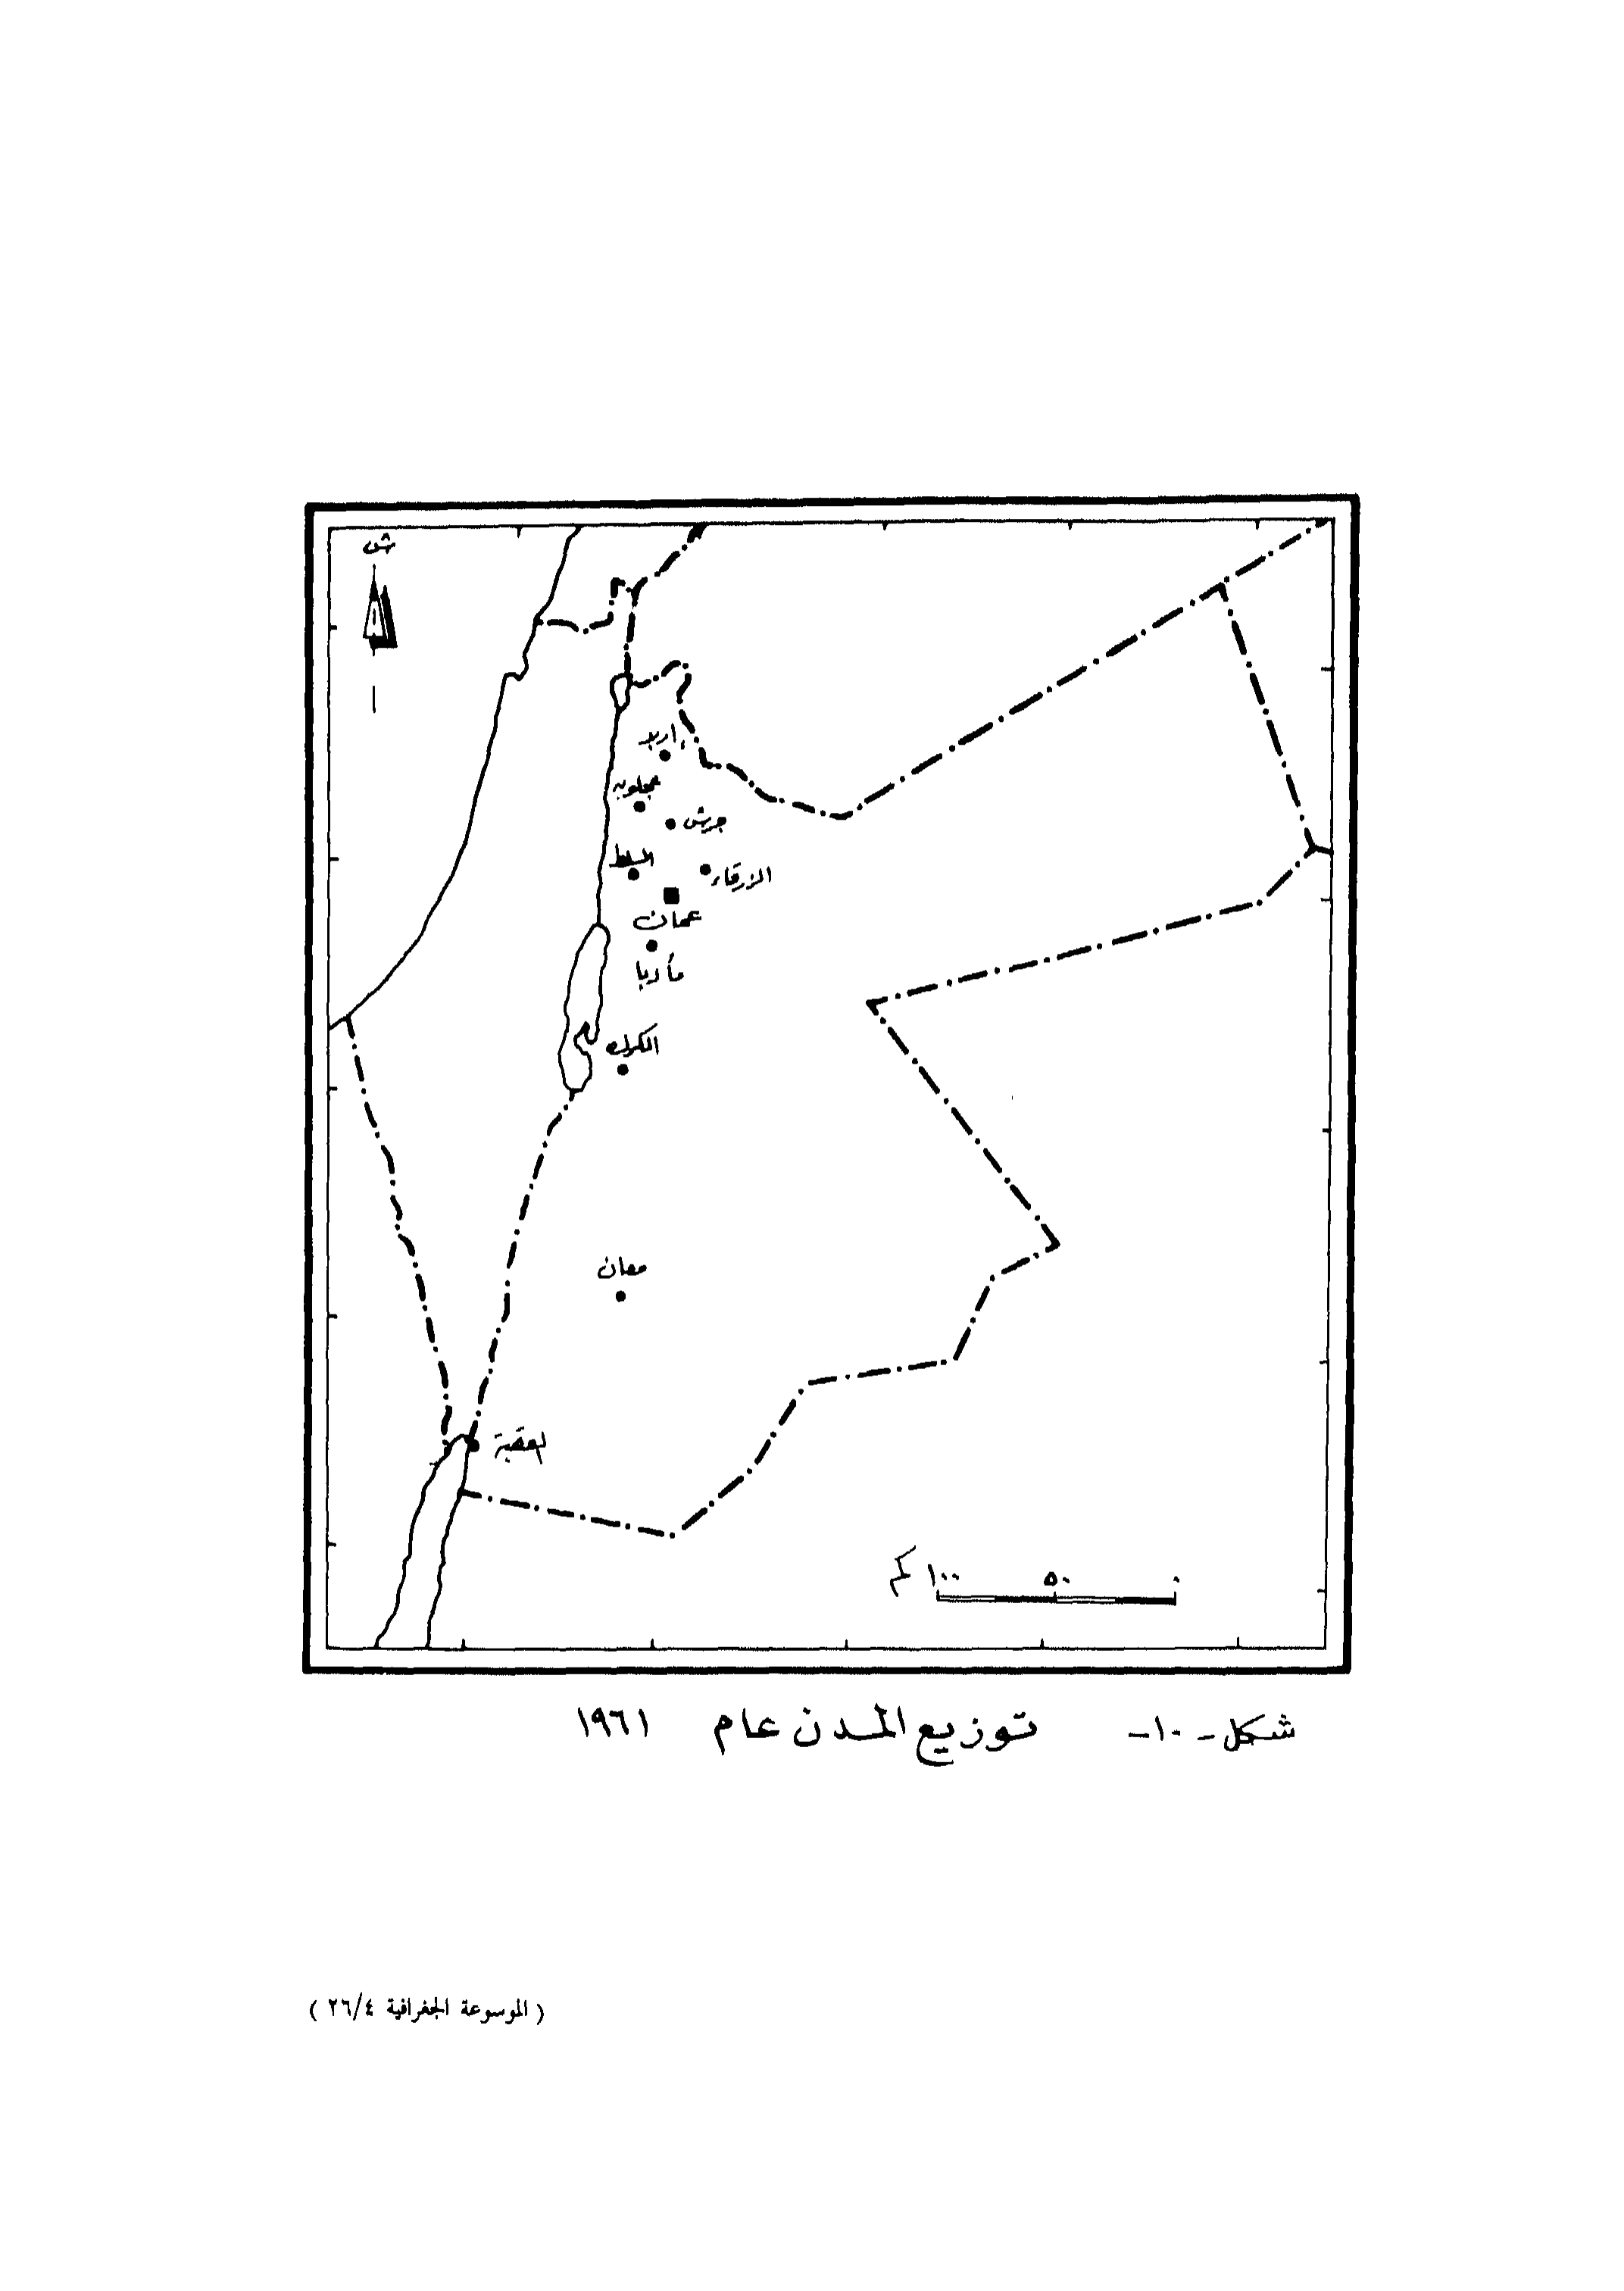 ش
إربد
عجلون
جرش
السلط
الزرقاء
عمان
مأدبا
الكرك
معان
العقبة
كم ١٠٠ ٥٠ ٠
شكل - ١٠- توزيع المدن عام ١٩٦١
( الموسوعة الجغرافية ٢٦/٤ )